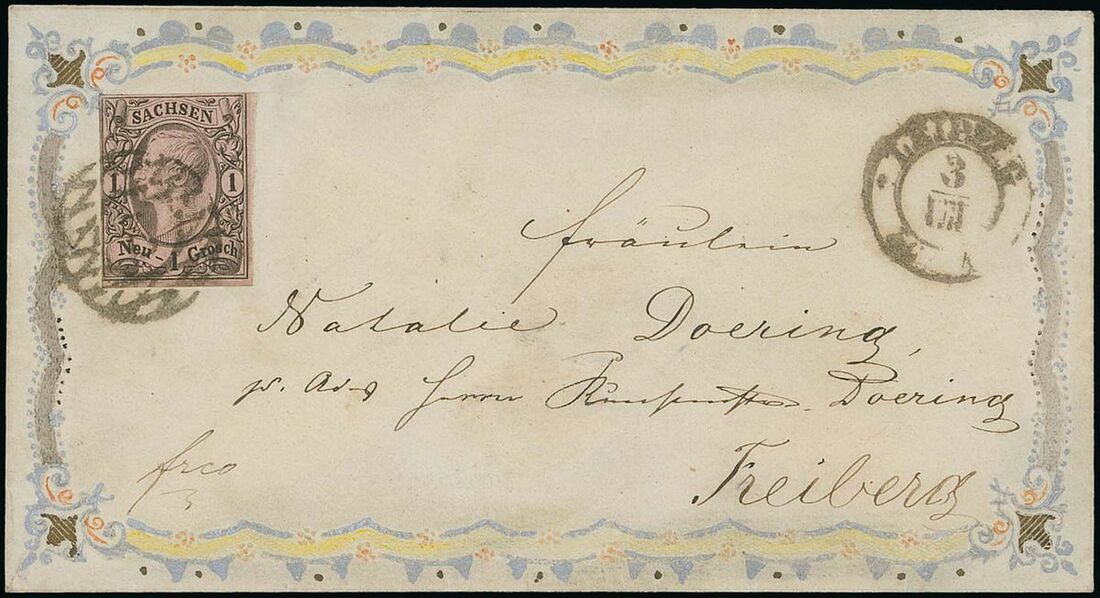 SACHSEN
1 1
Neu- 1 Grosch
LEIPZIG
3
III
Fräulein
Natalie Doering,
p. Adr Herrn Doering
frco
Freiberg